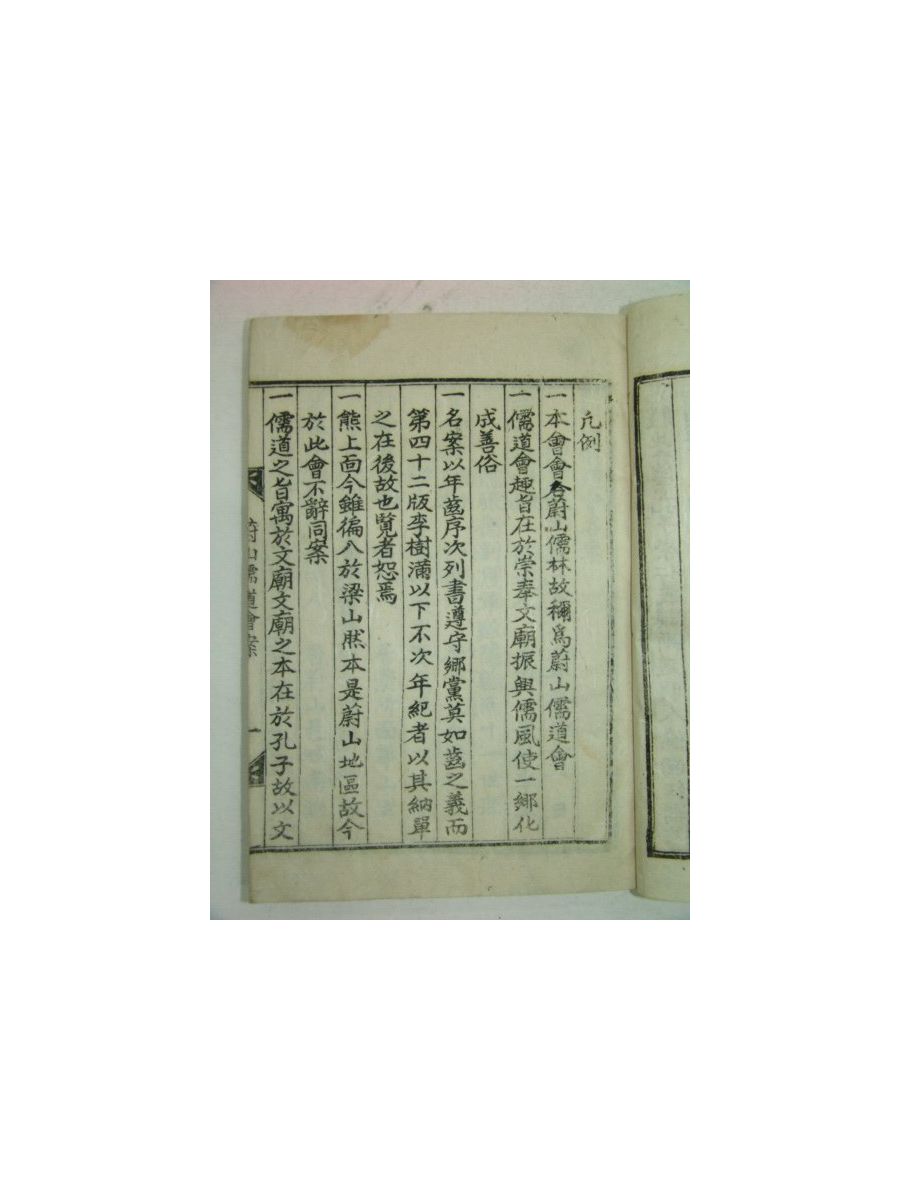 凡例
一本會會合蔚山儒林故稱爲蔚山儒道會
一儒道會趣旨在於崇奉文廟振興儒風使一鄉化
成善俗
一名案以年齒序次列書遵守鄉黨莫如齒之義而
第四十二版李樹滿以下不次年紀者以其納單
之在後故也覽者恕焉
一熊上面今雖徧入於梁山然本是蔚山地區故今
於此會不辭同案
一儒道之旨寓於文廟文廟之本在於孔子故以文
蔚山儒道會案 一